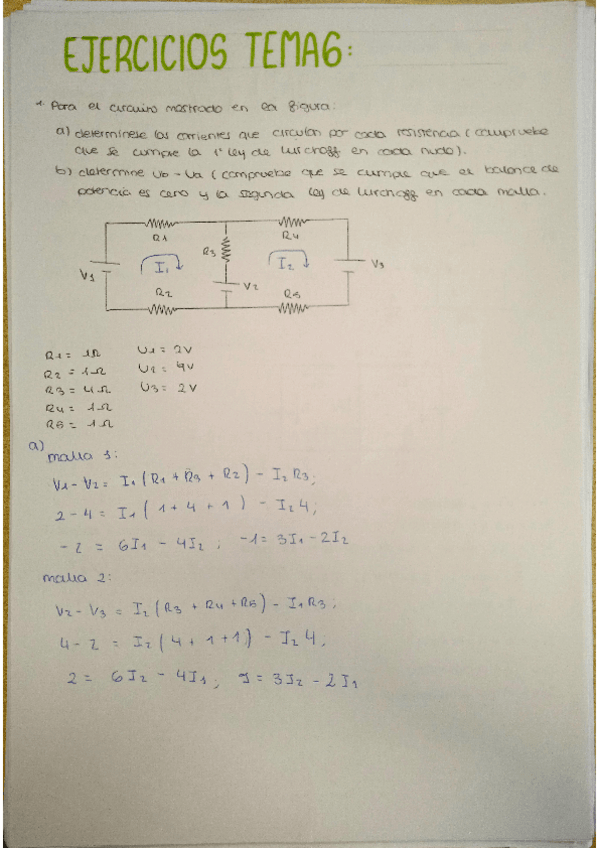 EJERCICIOS TEMA6:
1. Para el circuito mostrado en la figura:
a) determínese las corrientes que circulan por cada resistencia (compruebe
que se cumple la 1ª ley de Kirchoff en cada nudo).
b) determine Vb - Va (compruebe que se cumple que el balance de
potencia es cero y la segunda ley de Kirchoff en cada malla.
R1 R4
R3
V1 I1 V2 I2 V3
R2 R5
R1 = 1Ω V1 = 2V
R2 = 1Ω V2 = 4V
R3 = 4Ω V3 = 2V
R4 = 1Ω
R5 = 1Ω
a)
malla 1:
V1 - V2 = I1 (R1 + R3 + R2) - I2 R3;
2 - 4 = I1 ( 1 + 4 + 1 ) - I2 4;
-2 = 6I1 - 4I2 ; -1 = 3I1 - 2I2
malla 2:
V2 - V3 = I2 (R3 + R4 + R5) - I1 R3;
4 - 2 = I2 (4 + 1 + 1) - I2 4,
2 = 6I2 - 4I1 ; 1 = 3I2 - 2I1